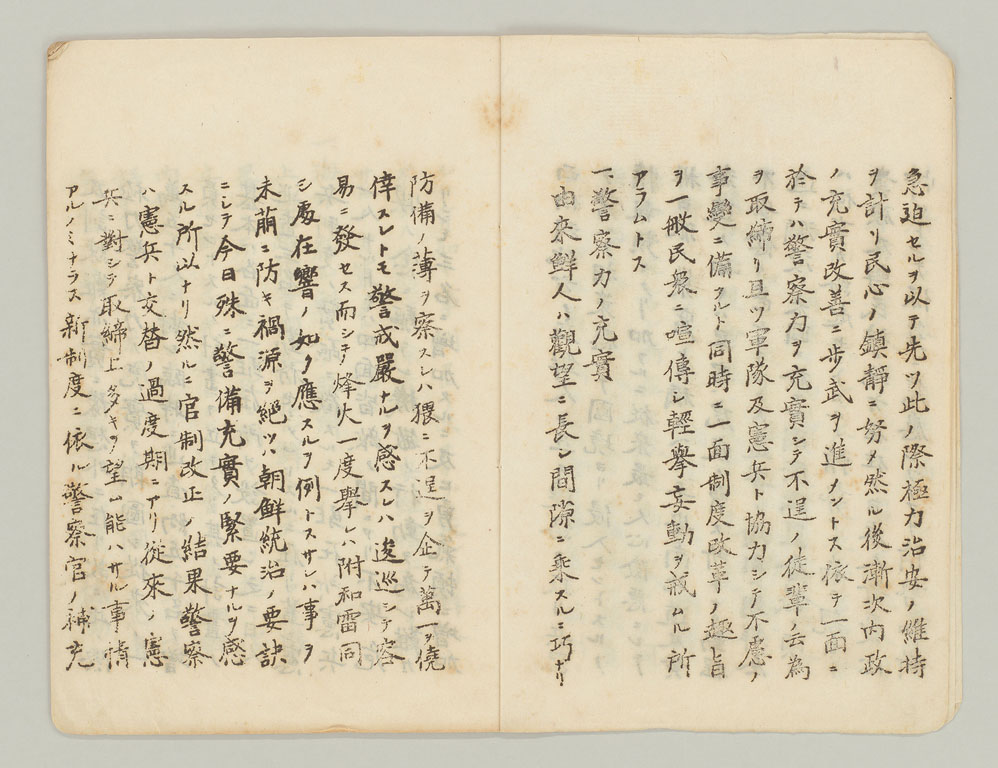 急迫セルヲ以テ先ツ此ノ際極力治安ノ維持
ヲ計リ民心ノ鎮靜ニ努メ然ル後漸次内政
ノ充實改善ニ步武ヲ進メントス依テ一面ニ
於テハ警察力ヲ充實シテ不逞ノ徒輩ノ云為
ヲ取締リ且ツ軍隊及憲兵ト協力シテ不慮ノ
事變ニ備フルト同時ニ一面制度改革ノ趣旨
ヲ一般民衆ニ喧傳シ輕擧妄動ヲ戒ムル所
アラムトス
一、警察力ノ充實
由來鮮人ハ觀望ニ長シ間隙ニ乘スルニ巧ナリ
防備ノ薄ヲ察スレハ猥ニ不逞ヲ企テ萬一ヲ僥
倖スレトモ警戒嚴ナルヲ感スレハ逡巡シテ容
易ニ發セス而シテ烽火一度擧レハ附和雷同
シ處在響ノ如ク應スルヲ例トスサレハ事ヲ
未萠ニ防キ禍源ヲ絶ツハ朝鮮統治ノ要訣
ニシテ今日殊ニ警備充實ノ緊要ナルヲ感
スル所以ナリ然ルニ官制改正ノ結果警察
ハ憲兵ト交替ノ過度期ニアリ從來ノ憲
兵ニ對シテ取締上多キヲ望ム能ハサル事情
アルノミナラス新制度ニ依ル警察官ノ補充